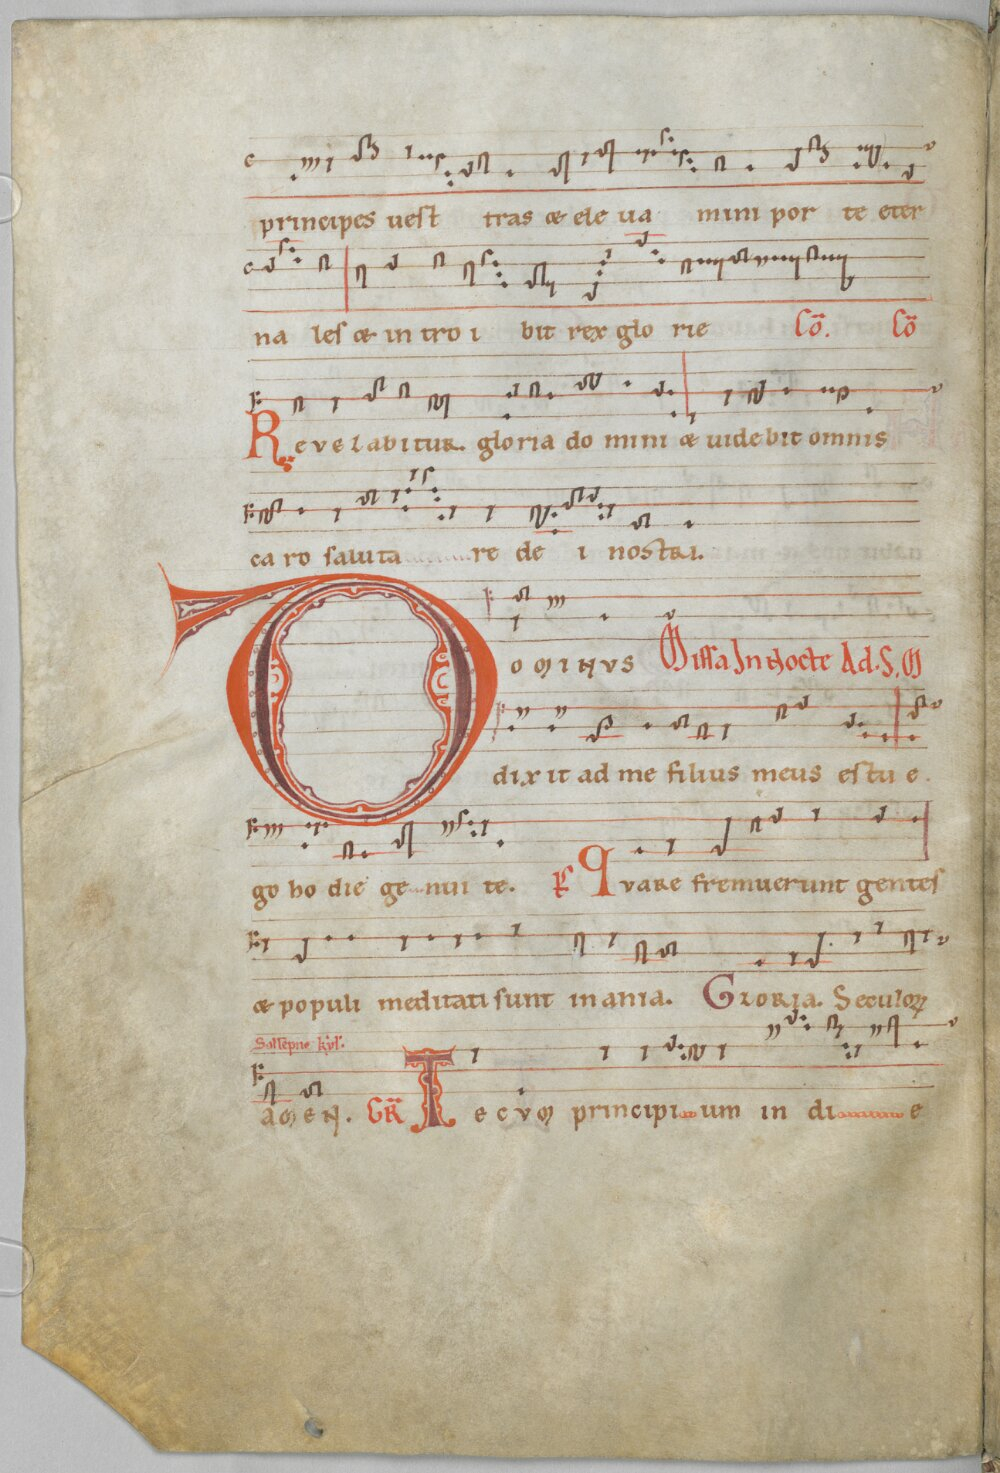 principes uest tras & ele ua mini por te eter
na les & in tro i bit rex glo rie Cō. Cō
Revelabitur. gloria domini & uidebit omnis
ca ro saluta re de i nostri.
Dominus Missa In Nocte Ad. S. M
dixit ad me filius meus es tu e.
go ho die ge nui te. Quare fremuerunt gentes
& populi meditati sunt inania. Gloria. Seculorum
amen. GR Tecum principi um in di e